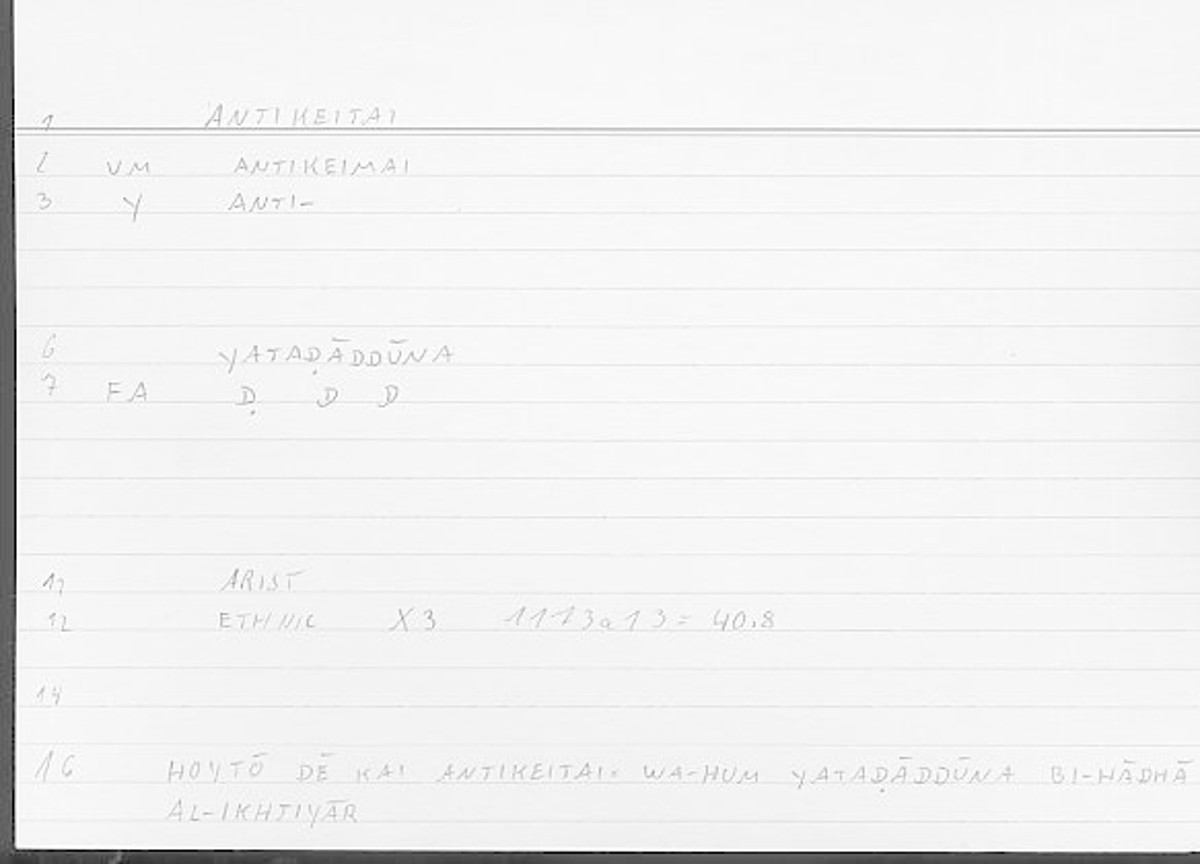 1 ANTIKEITAI
2 VM ANTIKEIMAI
3 Y ANTI-
6 YATAḌĀDDŪNA
7 FA Ḍ D D
11 ARIST
12 ETH NIC X3 1113a13 = 40.8
14
16 HOYTŌ DĒ KAI ANTIKEITAI = WA-HUM YATAḌĀDDŪNA BI-HĀDHĀ
AL-IKHTIYĀR